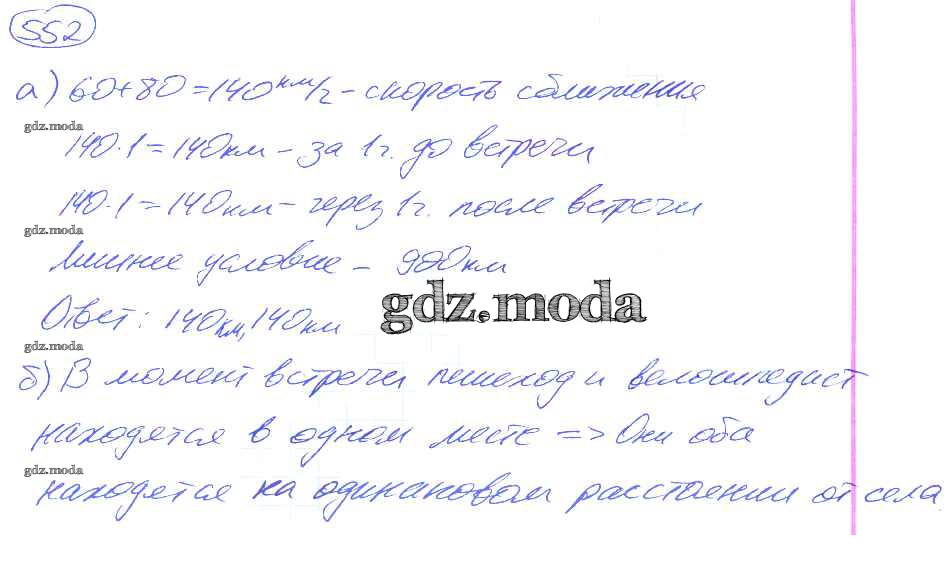 552
а) 60+80=140км/ч - скорость сближения
gdz.moda
140·1=140км - за 1ч. до встречи
140·1=140км - через 1ч. после встречи
gdz.moda
Лишнее условие - 900км
gdz.moda
Ответ: 140км, 140км
gdz.moda
б) В момент встречи пешеход и велосипедист
находятся в одном месте => Они оба
gdz.moda
находятся на одинаковом расстоянии от села